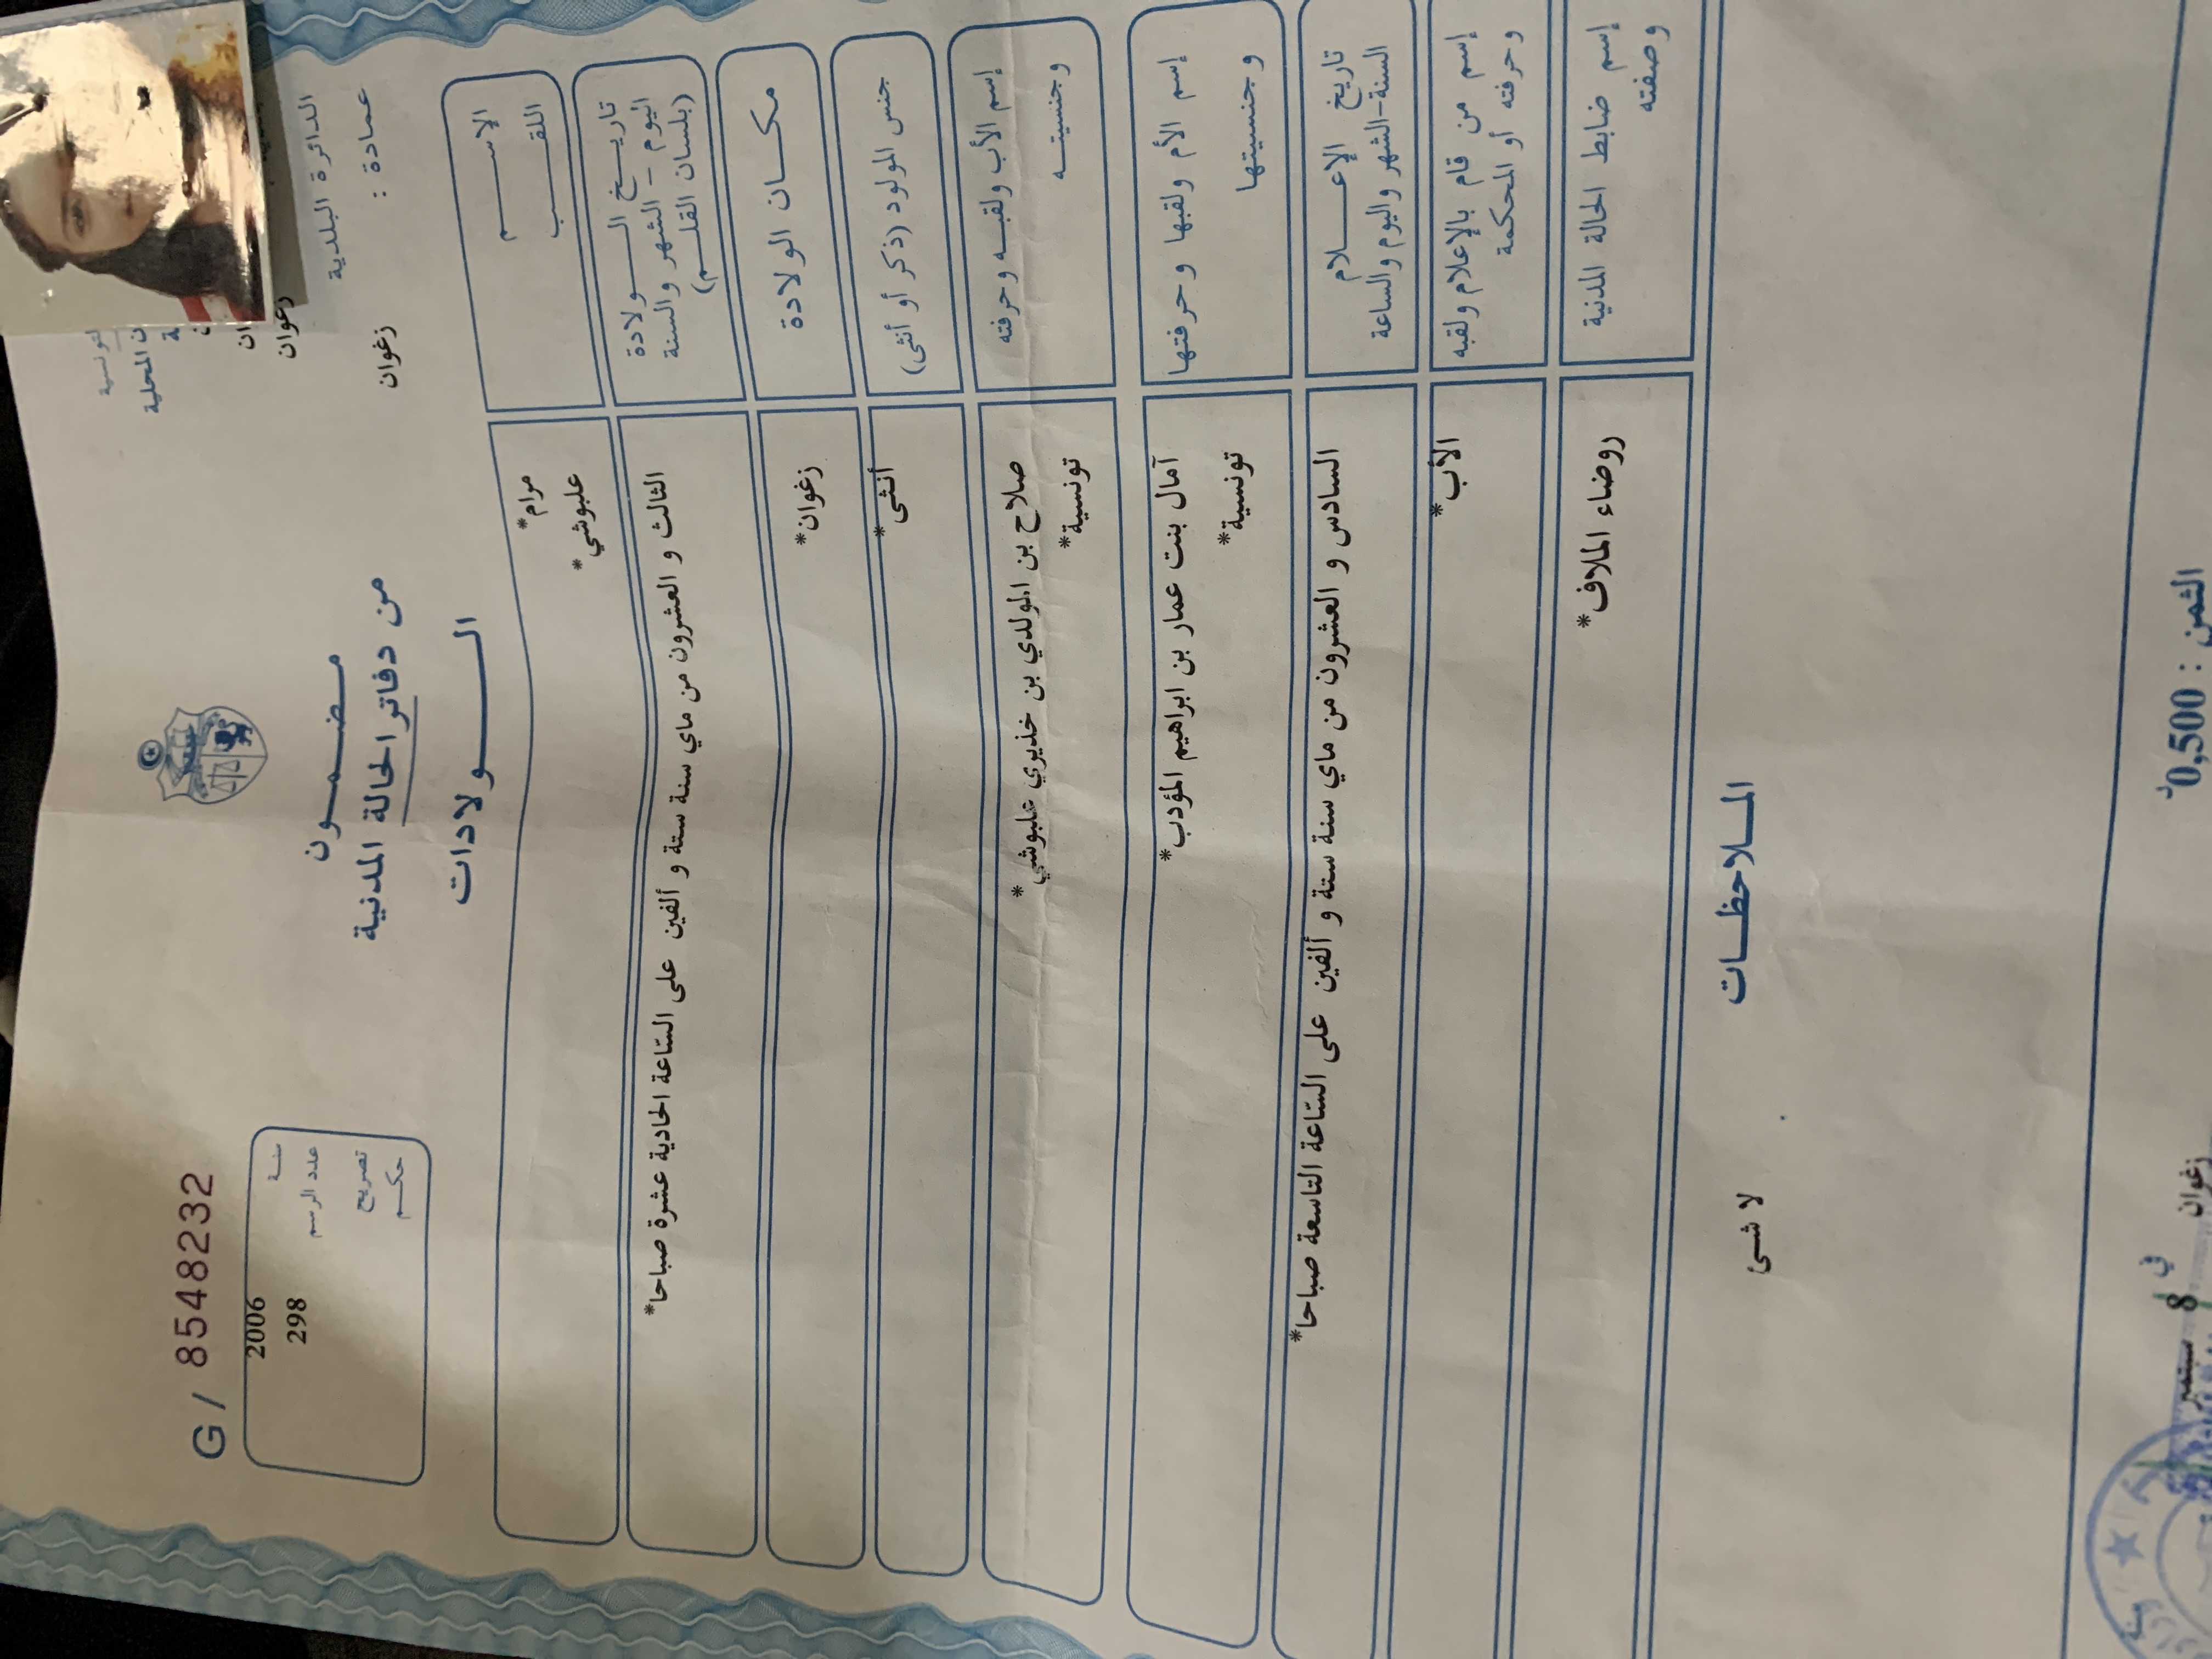 G / 8548232
سنة 2006
عدد الرسم 298
تصريح
حكم
ن المحلية
زغوان
الدائرة البلدية
زغوان
عمادة :
مضمون
من دفاتر الحالة المدنية
الولادات
الاسم
اللقب
مرام*
علبوشي*
تاريخ الولادة
اليوم - الشهر والسنة
(بلسان القلم)
الثالث و العشرون من ماي سنة ستة و ألفين على السّاعة الحادية عشرة صباحا*
مكان الولادة
زغوان*
جنس المولود (ذكر أو أنثى)
أنثى*
إسم الأب ولقبه وحرفته
وجنسيته
صلاح بن المولدي بن خذيري علبوشي*
تونسية*
إسم الأم ولقبها وحرفتها
وجنسيتها
آمال بنت عمار بن ابراهيم المؤدب*
تونسية*
تاريخ الإعلام
السنة-الشهر واليوم والساعة
السادس و العشرون من ماي سنة ستة و ألفين على السّاعة التاسعة صباحا*
إسم من قام بالإعلام ولقبه
وحرفته أو المحكمة
الأب*
إسم ضابط الحالة المدنية
وصفته
روضاء الملاف*
الملاحظات
لا شئ
الثمن : 0,500د
زغوان في 8 سبتمبر